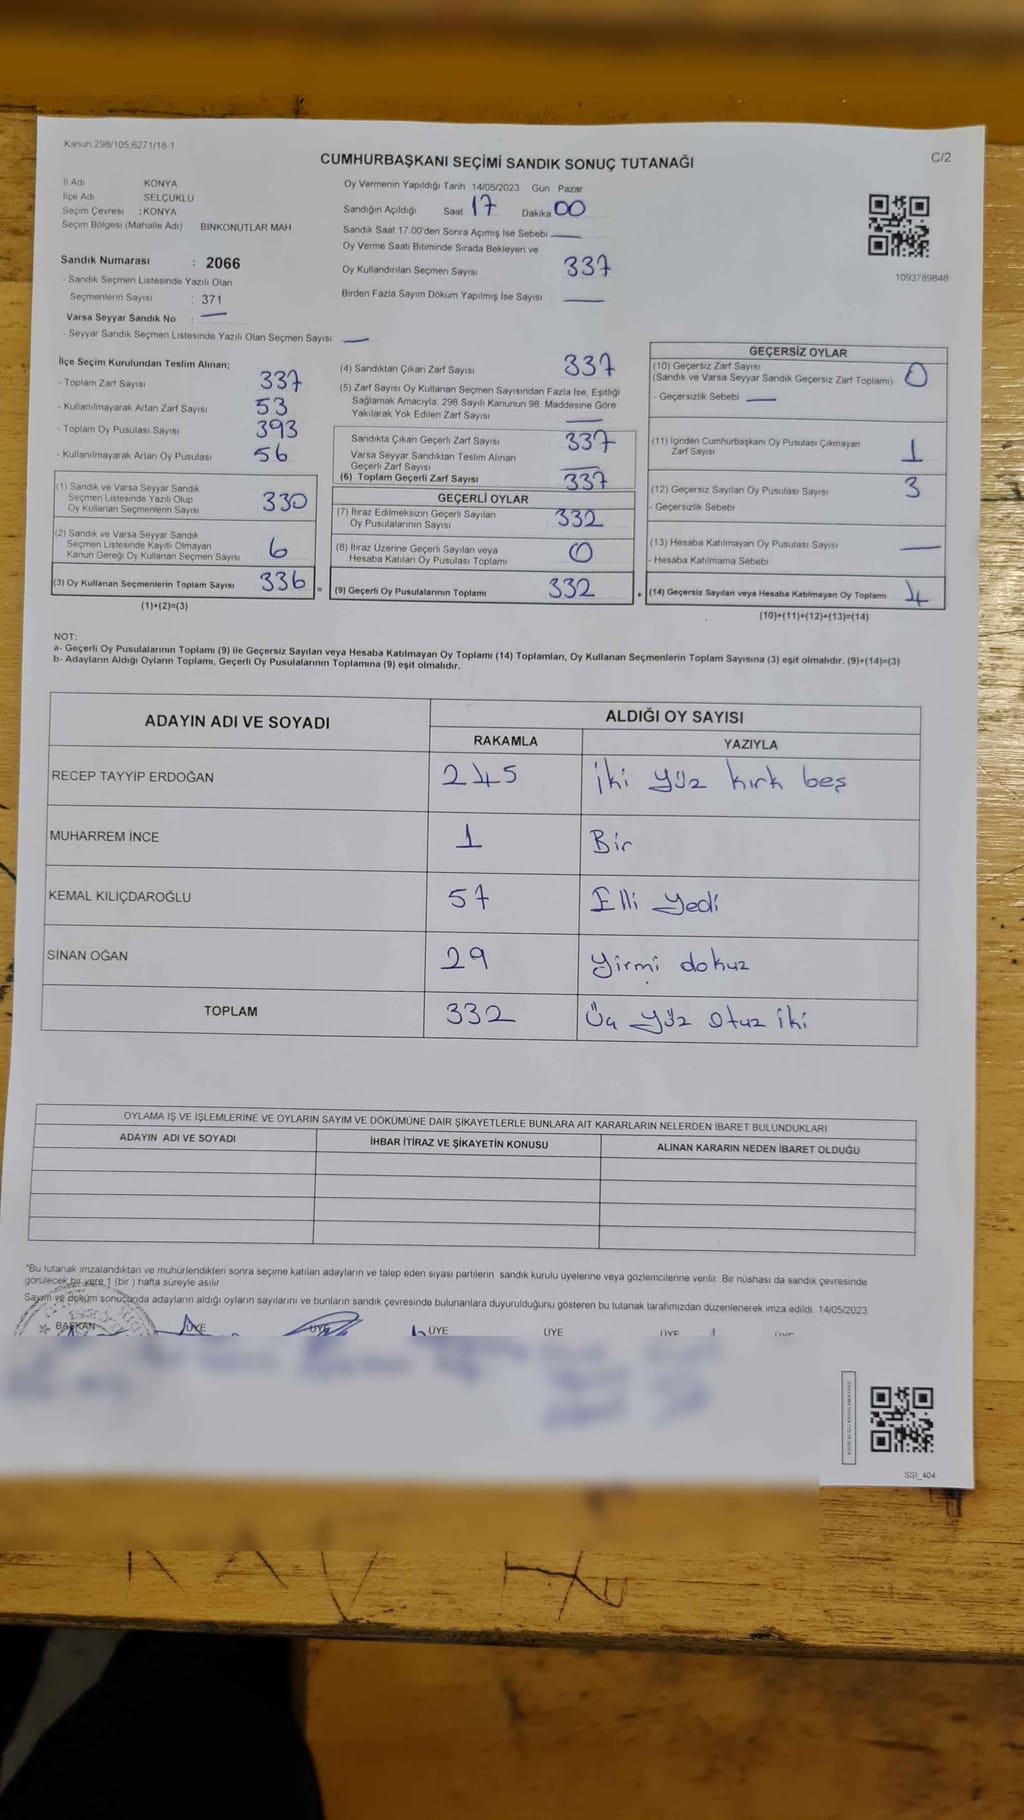 Kanun 298/105,6271/18-1
CUMHURBAŞKANI SEÇİMİ SANDIK SONUÇ TUTANAĞI
C/2
İl Adı KONYA
İlçe Adı SELÇUKLU
Seçim Çevresi : KONYA
Seçim Bölgesi (Mahalle Adı) BİNKONUTLAR MAH.
Sandık Numarası : 2066
- Sandık Seçmen Listesinde Yazılı Olan
Seçmenlerin Sayısı : 371
Varsa Seyyar Sandık No : —
- Seyyar Sandık Seçmen Listesinde Yazılı Olan Seçmen Sayısı: —
Oy Vermenin Yapıldığı Tarih 14/05/2023 Gün : Pazar
Sandığın Açıldığı Saat 17 Dakika 00
Sandık Saat 17.00'den Sonra Açımış İse Sebebi —
Oy Verme Saati Bitiminde Sırada Bekleyen ve
Oy Kullandırılan Seçmen Sayısı 337
Birden Fazla Sayım Döküm Yapılmış İse Sayısı —
1093789848
İlçe Seçim Kurulundan Teslim Alınan;
- Toplam Zarf Sayısı 337
- Kullanılmayarak Artan Zarf Sayısı 53
- Toplam Oy Pusulası Sayısı 393
- Kullanılmayarak Artan Oy Pusulası 56
(1) Sandık ve Varsa Seyyar Sandık
Seçmen Listesinde Yazılı Olup
Oy Kullanan Seçmenlerin Sayısı 330
(2) Sandık ve Varsa Seyyar Sandık
Seçmen Listesinde Kayıtlı Olmayan
Kanun Gereği Oy Kullanan Seçmen Sayısı 6
(3) Oy Kullanan Seçmenlerin Toplam Sayısı 336 =
(1)+(2)=(3)
(4) Sandıktan Çıkan Zarf Sayısı 337
(5) Zarf Sayısı Oy Kullanan Seçmen Sayısından Fazla İse, Eşitliği
Sağlamak Amacıyla, 298 Sayılı Kanunun 98. Maddesine Göre
Yakılarak Yok Edilen Zarf Sayısı —
Sandıkta Çıkan Geçerli Zarf Sayısı 337
Varsa Seyyar Sandıktan Teslim Alınan
Geçerli Zarf Sayısı —
(6) Toplam Geçerli Zarf Sayısı 337
GEÇERLİ OYLAR
(7) İtiraz Edilmeksizin Geçerli Sayılan
Oy Pusulalarının Sayısı 332
(8) İtiraz Üzerine Geçerli Sayılan veya
Hesaba Katılan Oy Pusulası Toplamı 0
(9) Geçerli Oy Pusulalarının Toplamı 332 +
GEÇERSİZ OYLAR
(10) Geçersiz Zarf Sayısı
(Sandık ve Varsa Seyyar Sandık Geçersiz Zarf Toplamı) 0
- Geçersizlik Sebebi —
(11) İçinden Cumhurbaşkanı Oy Pusulası Çıkmayan
Zarf Sayısı 1
(12) Geçersiz Sayılan Oy Pusulası Sayısı 3
- Geçersizlik Sebebi
(13) Hesaba Katılmayan Oy Pusulası Sayısı —
- Hesaba Katılmama Sebebi
(14) Geçersiz Sayılan veya Hesaba Katılmayan Oy Toplamı 4
(10)+(11)+(12)+(13)=(14)
NOT:
a- Geçerli Oy Pusulalarının Toplamı (9) ile Geçersiz Sayılan veya Hesaba Katılmayan Oy Toplamı (14) Toplamları, Oy Kullanan Seçmenlerin Toplam Sayısına (3) eşit olmalıdır. (9)+(14)=(3)
b- Adayların Aldığı Oyların Toplamı, Geçerli Oy Pusulalarının Toplamına (9) eşit olmalıdır.
ADAYIN ADI VE SOYADI ALDIĞI OY SAYISI
RAKAMLA YAZIYLA
RECEP TAYYİP ERDOĞAN 245 İki yüz kırk beş
MUHARREM İNCE 1 Bir
KEMAL KILIÇDAROĞLU 57 Elli yedi
SİNAN OĞAN 29 yirmi dokuz
TOPLAM 332 Üç yüz otuz iki
OYLAMA İŞ VE İŞLEMLERİNE VE OYLARIN SAYIM VE DÖKÜMÜNE DAİR ŞİKAYETLERLE BUNLARA AİT KARARLARIN NELERDEN İBARET BULUNDUKLARI
ADAYIN ADI VE SOYADI İHBAR İTİRAZ VE ŞİKAYETİN KONUSU ALINAN KARARIN NEDEN İBARET OLDUĞU
*Bu tutanak imzalandıktan ve mühürlendikten sonra seçime katılan adayların ve talep eden siyasi partilerin sandık kurulu üyelerine veya gözlemcilerine verilir. Bir nüshası da sandık çevresinde
görülecek bir yere 1 (bir ) hafta süreyle asılır.
Sayım ve döküm sonucunda adayların aldığı oyların sayılarını ve bunların sandık çevresinde bulunanlara duyurulduğunu gösteren bu tutanak tarafımızdan düzenlenerek imza edildi. 14/05/2023
BAŞKAN ÜYE ÜYE ÜYE ÜYE ÜYE ÜYE
SSI_404